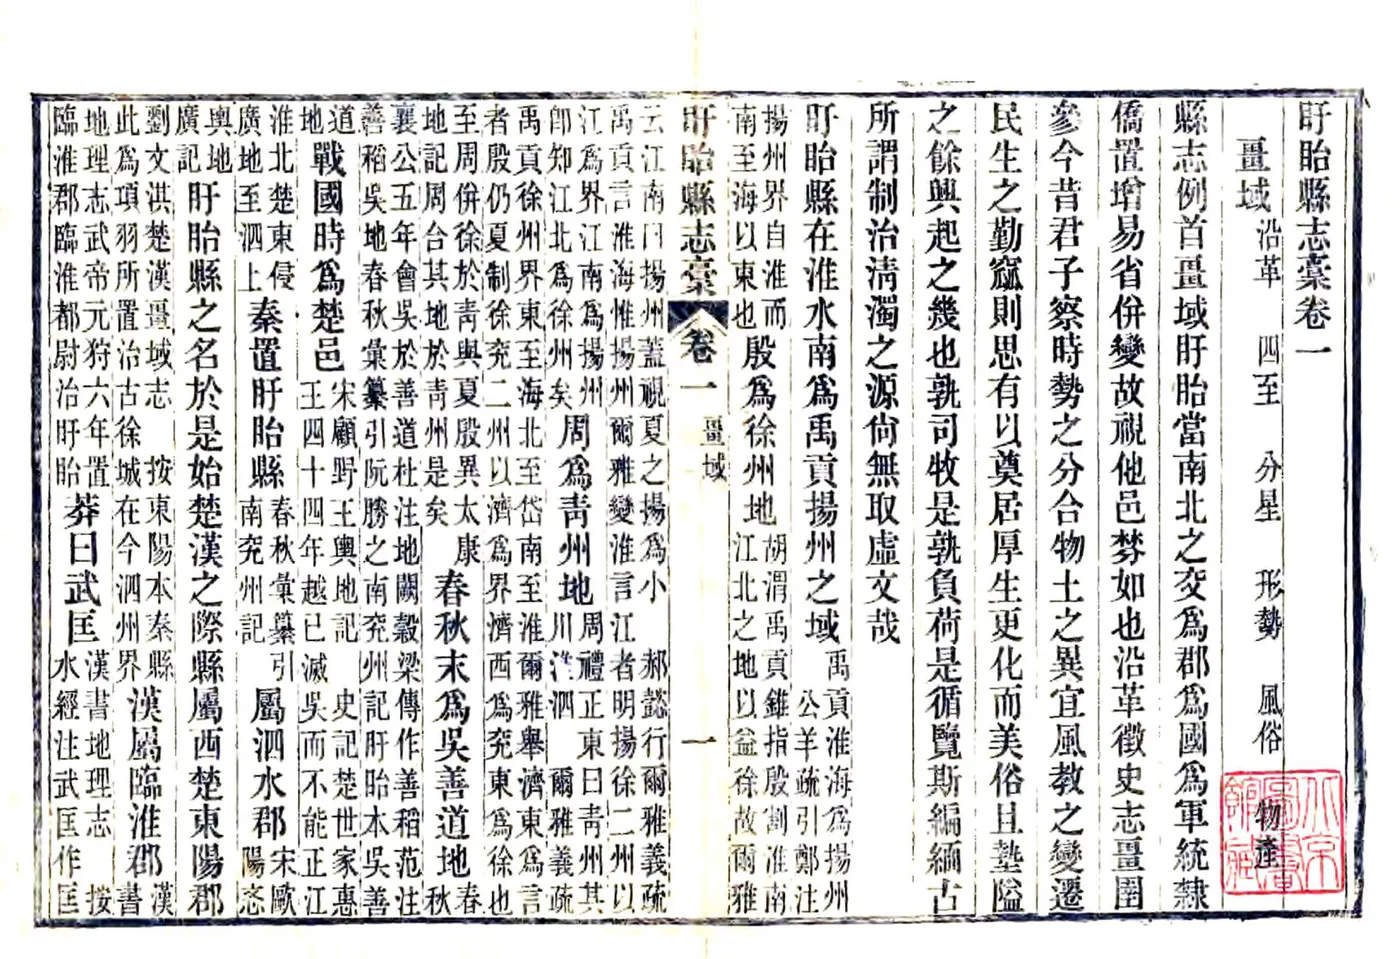 盱眙縣志稾卷一
畺域 沿革 四至 分星 形勢 風俗 物產
縣志例首畺域盱眙當南北之交為郡為國為軍統隸
僑置增易省併變故視他邑棼如也沿革徵史志畺圉
參今昔君子察時勢之分合物土之異宜風教之變遷
民生之勤窳則思有以奠居厚生更化而美俗且墊隘
之餘興起之幾也孰司牧是孰負荷是循覽斯編緬古
所謂制治清濁之源尙無取虛文哉
盱眙縣在淮水南為禹貢揚州之域 禹貢淮海為揚州 公羊疏引鄭注
揚州界自淮而 南至海以東也 殷為徐州地 胡渭禹貢錐指殷割淮南 江北之地以益徐故爾雅
盱眙縣志稾 卷一 畺域 一
云江南曰揚州蓋視夏之揚為小 郝懿行爾雅義疏
禹貢言淮海惟揚州爾雅變淮言江者明揚徐二州以
江為界江南為揚州 卽知江北為徐州矣 周為青州地 周禮正東曰青州其 川淮泗 爾雅義疏
禹貢徐州界東至海北至岱南至淮爾雅舉濟東為言
者殷仍夏制徐兗二州以濟為界濟西為兗東為徐也
至周併徐於青與夏殷異太康 地記周合其地於青州是矣 春秋末為吳善道地 春 秋
襄公五年會吳於善道杜注地闕穀梁傳作善稻范注
善稻吳地春秋彙纂引阮勝之南兗州記盱眙本吳善
道 地 戰國時為楚邑 宋顧野王輿地記 史記楚世家惠 王四十四年越已滅吳而不能正江
淮北楚東侵 廣地至泗上 秦置盱眙縣 春秋彙纂引 南兗州記 屬泗水郡 宋歐 陽忞
輿地 廣記 盱眙縣之名於是始楚漢之際縣屬西楚東陽郡
劉文淇楚漢畺域志 按東陽本秦縣 此為項羽所置治古徐城在今泗州界 漢屬臨淮郡 漢 書
地理志武帝元狩六年置 臨淮郡臨淮都尉治盱眙 莽曰武匡 漢書地理志 按 水經注武匡作匡
北京圖書館藏